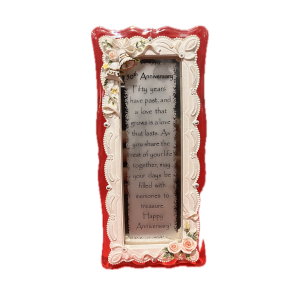 50th Anniversary
Fifty years
have past, and
a love that
grows is a love
that lasts. As
you share the
rest of your life
together, may
your days be
filled with
memories to
treasure.
Happy
Anniversary!